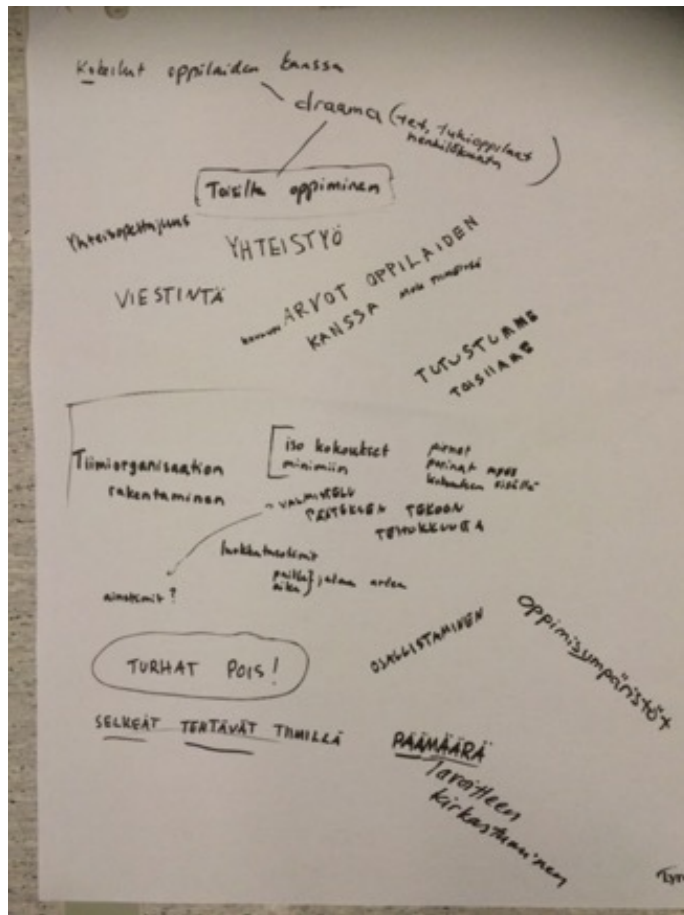 Kokeilut oppilaiden kanssa
draama (tet, tukioppilaat
henkilökunta)
Toisilta oppiminen
Yhteisopettajuus
YHTEISTYÖ
VIESTINTÄ
ARVOT OPPILAIDEN
KANSSA
TUTUSTUMME
TOISIIMME
Tiimiorganisaation
rakentaminen
iso kokoukset
minimiin
pienet
porinat myös
kokouksen sisällä
VALMISTELU
PÄÄTÖKSEN TEKOON
TEHOKKUUTTA
luokkatasotiimit
paikka
aika } jalaa arden
ainetiimit?
TURHAT POIS!
OSALLISTAMINEN
oppimisympäristöt
SELKEÄT TEHTÄVÄT TIIMILLÄ
PÄÄMÄÄRÄ
Tavoitteen
kirkastuminen